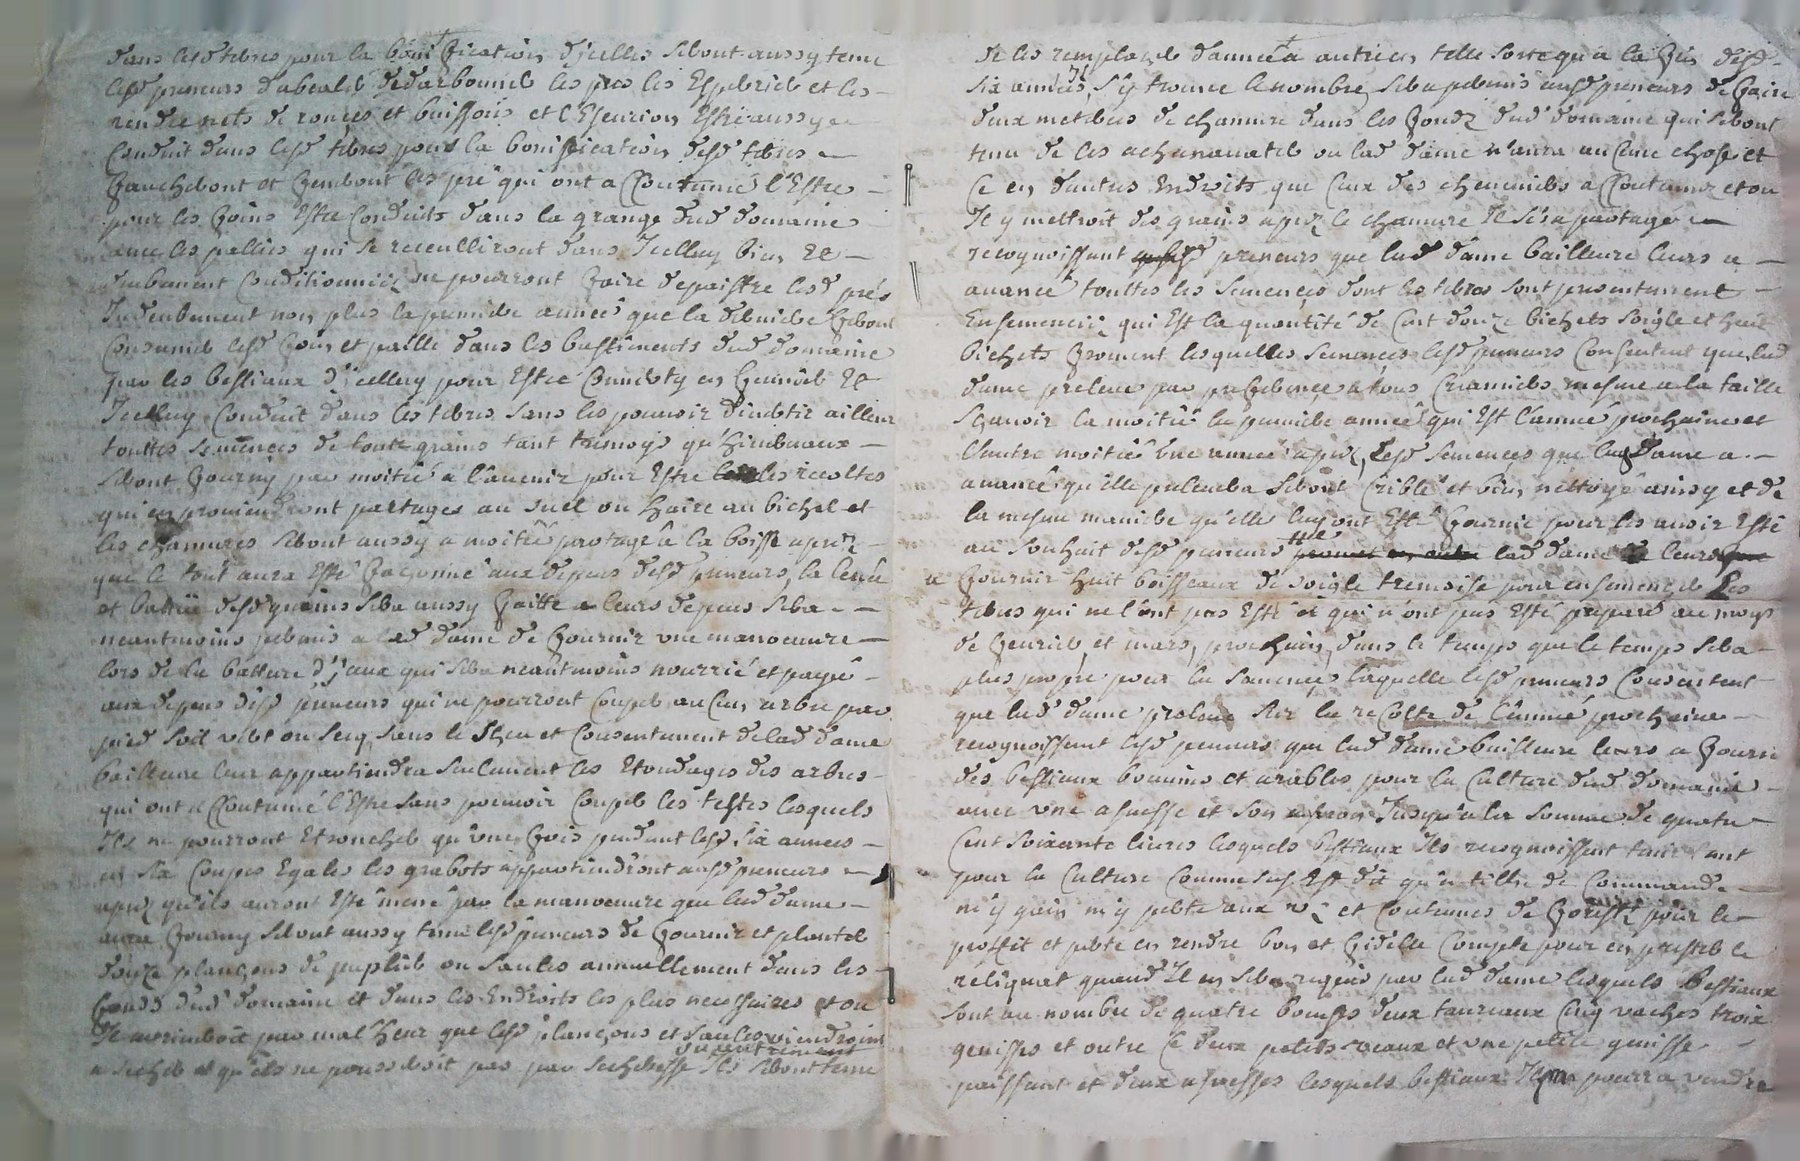 dans lesd terres pour la bonification d'jcelles seront aussy tenu
lesd preneurs d'abealer dedarbonner les pres les Esperier et les
rendre nets de ronçes et buissons et l'Escurion Estre aussy
Conduit dans lesd terres pour la bonification desd terres
faucheront et feneront les pré qui ont accoutumé l'Estre
pour les foins Estre Conduits dans la grange dud domaine
avec les pallies qui se receulliront dans Jcelluy bien Et
Conditionnéz ne pourront faire depaistre lesd prés
Induement non plus la premiere année que la derniere feront
Consumer lesd foin et paille dans les bastiments dud domaine
par les bestiaux d'jcelluy pour Estre Converty en fumier Et
Jcelluy Conduit dans les terres sans les pouvoir divertir ailleur
touttes semences de touts grains tant tremoys qu'hivernaux
seront fourny par moitié a l'avenir pour Estre les recoltes
qui en proviendront partages au suel ou haire au bichet et
les chanvres seront aussy a moitié partagé â la boisse apréz
que le tout aura Esté façonné aux depens desd preneurs, la levée
et battüe desd grains sera aussy faitte a leurs depens sera
neantmoins permis a lad dame de fournir une manoeuvre
lors de la batture d'jceux qui sera neantmoins nourrié et payé
aux depens desd preneurs qui ne pourront Couper aucun arbre par
pied soit vert ou secq sans le sçeu et Consentement de lad dame
bailleure leur appartiendra seulement les Etondages des arbres
qui ont accoutumé l'Estre sans pouvoir Couper les testes lesquels
Ils ne pourront Etroncher qu'une fois pendant lesd six annees
en six Coupes Egales les grabots appartiendront ausd preneurs
apréz qu'ils auront Esté mené par la manoeuvre que lad dame
aura fourny seront aussy tenu lesd preneurs de fournir et planter
douze plançons de puplier ou saules annuellement dans les
fonds dud domaine et dans les Endroits les plus necessaires et ou
Il arriveroit par mal heur que lesd plançons et saules viendroint
a secher et qu'ils ne pousseroit pas par secheresse ou autrement Ils seront tenu
de les remplacer d'année a autre en telle sorte qu'a la fin desd
six années, s'y trouve le nombre sera permis ausd preneurs de faire
deux meteres de chanvre dans les fondz dud domaine qui seront
tenu de les ou lad dame n'aura aucune chose et
Ce en d'autres Endroits que Ceux des chenevieres accoutuméz et ou
Il y mettroit des grains apréz le chanvre Il sera partagé
recognoissant lesd preneurs que lad dame bailleure leurs a
avancé touttes les semences dont les terres sont presentement
Ensemencéz qui Est la quantité de Cent douze bichets soigle et huit
bichets froment lesquelles semences lesd preneurs Consentent que lad
dame preleve par preference a tous Creanciers mesme a la taille
sçavoir la moitié la premiere année qui Est l'année prochaine et
l'autre moitié une année apréz, Lesd semences que lad dame a
avancé qu'elle prelevera seront Criblé et bien nettoyé ainsy et de
la mesme maniere qu'elles leurs ont Esté fournie pour les avoir Esté
au souhait desd preneurs promet en outre lad dame de leurs
fournir huit boisseaux de soigle tremoise pour ensemencer Les
terres qui ne l'ont pas Esté et qui n'ont pas Esté preparé au moys
de fevrier, et mars, prochain, dans le temps que le temps sera
plus propre pour la semence laquelle lesd preneurs Consentent
que lad dame preleve sur la recolte de l'année prochaine
recognoissant lesd preneurs que lad dame bailleure leurs a fourni
des bestiaux bovines et arables pour la Culture dud domaine
avec une asnesse et son asnon Jusqu'a la somme de quatre
Cent soixante livres lesquels bestiaux Ils recognoissent tenir tant
pour la Culture Comme sus Est dit qu'a tittre de Commande
my gain my perte aux us et Coutumes de forest pour le
proffit et perte en rendre bon et fidelle Compte pour en prester le
reliquat quand Il en sera requis par lad dame lesquels Bestiaux
sont au nombre de quatre boeufs deux taureaux Cinq vaches troix
genisses et outre Ce deux petits veaux et une petite genisse
paissant et deux asnesses lesquels bestiaux Il pourra vendre